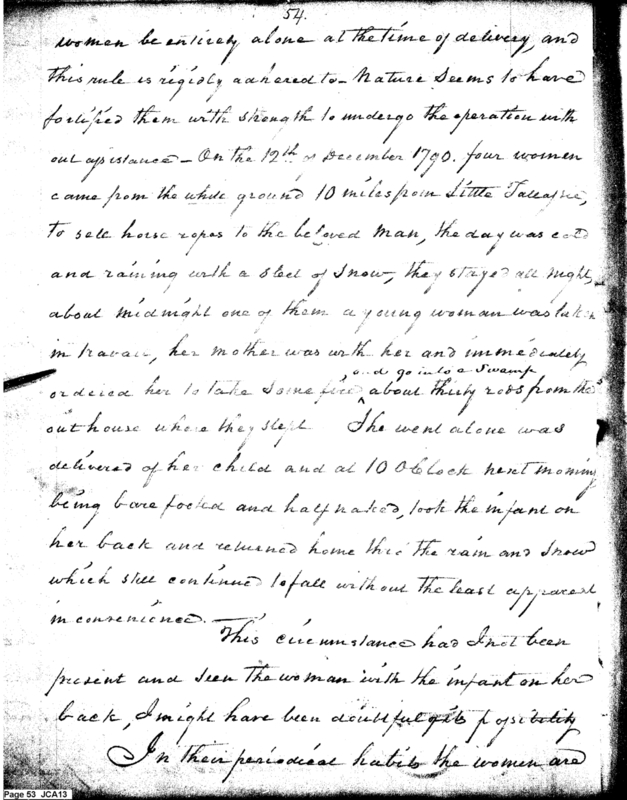 54.
women be entirely alone at the time of delivery, and
this rule is rigidly adhered to _ Nature seems to have
fortified them with strength to undergo the operation with
out assistance _ On the 12th of December 1790. four women
came from the white ground 10 miles from Little Tallassie,
to sell horse ropes to the beloved man, the day was cold
and raining with a sleet of snow, they stayed all night,
about midnight one of them a young woman was taken
in travail, her mother was with her and immediately
and go into a swamp
ordered her to take some fire, about thirty rods from the
out house where they slept. She went alone was
delivered of her child and at 10 OClock next morning
being bare footed and half naked, took the infant on
her back and returned home thro the rain and snow
which still continued to fall without the least apparent
inconvenience. —
This circumstance had I not been
present and seen the woman with the infant on her
back, I might have been doubtful of its possibility
In their periodical habits the women are
Page 53 JCA13